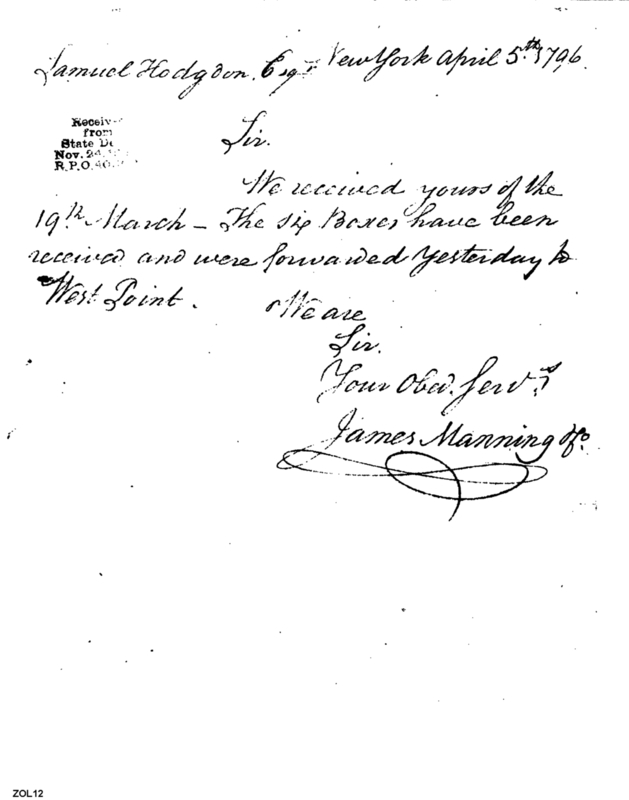 Samuel Hodgdon. Esqr. New York April 5.th 1796.
Receiv
from
State De
Nov. 24
R.P.O. 40
Sir.
We received yours of the
19th March – The six Boxes have been
received and were forwarded Yesterday to
West Point. We are
Sir.
Your Obed. Servts
James Manning &Co.
ZOL12